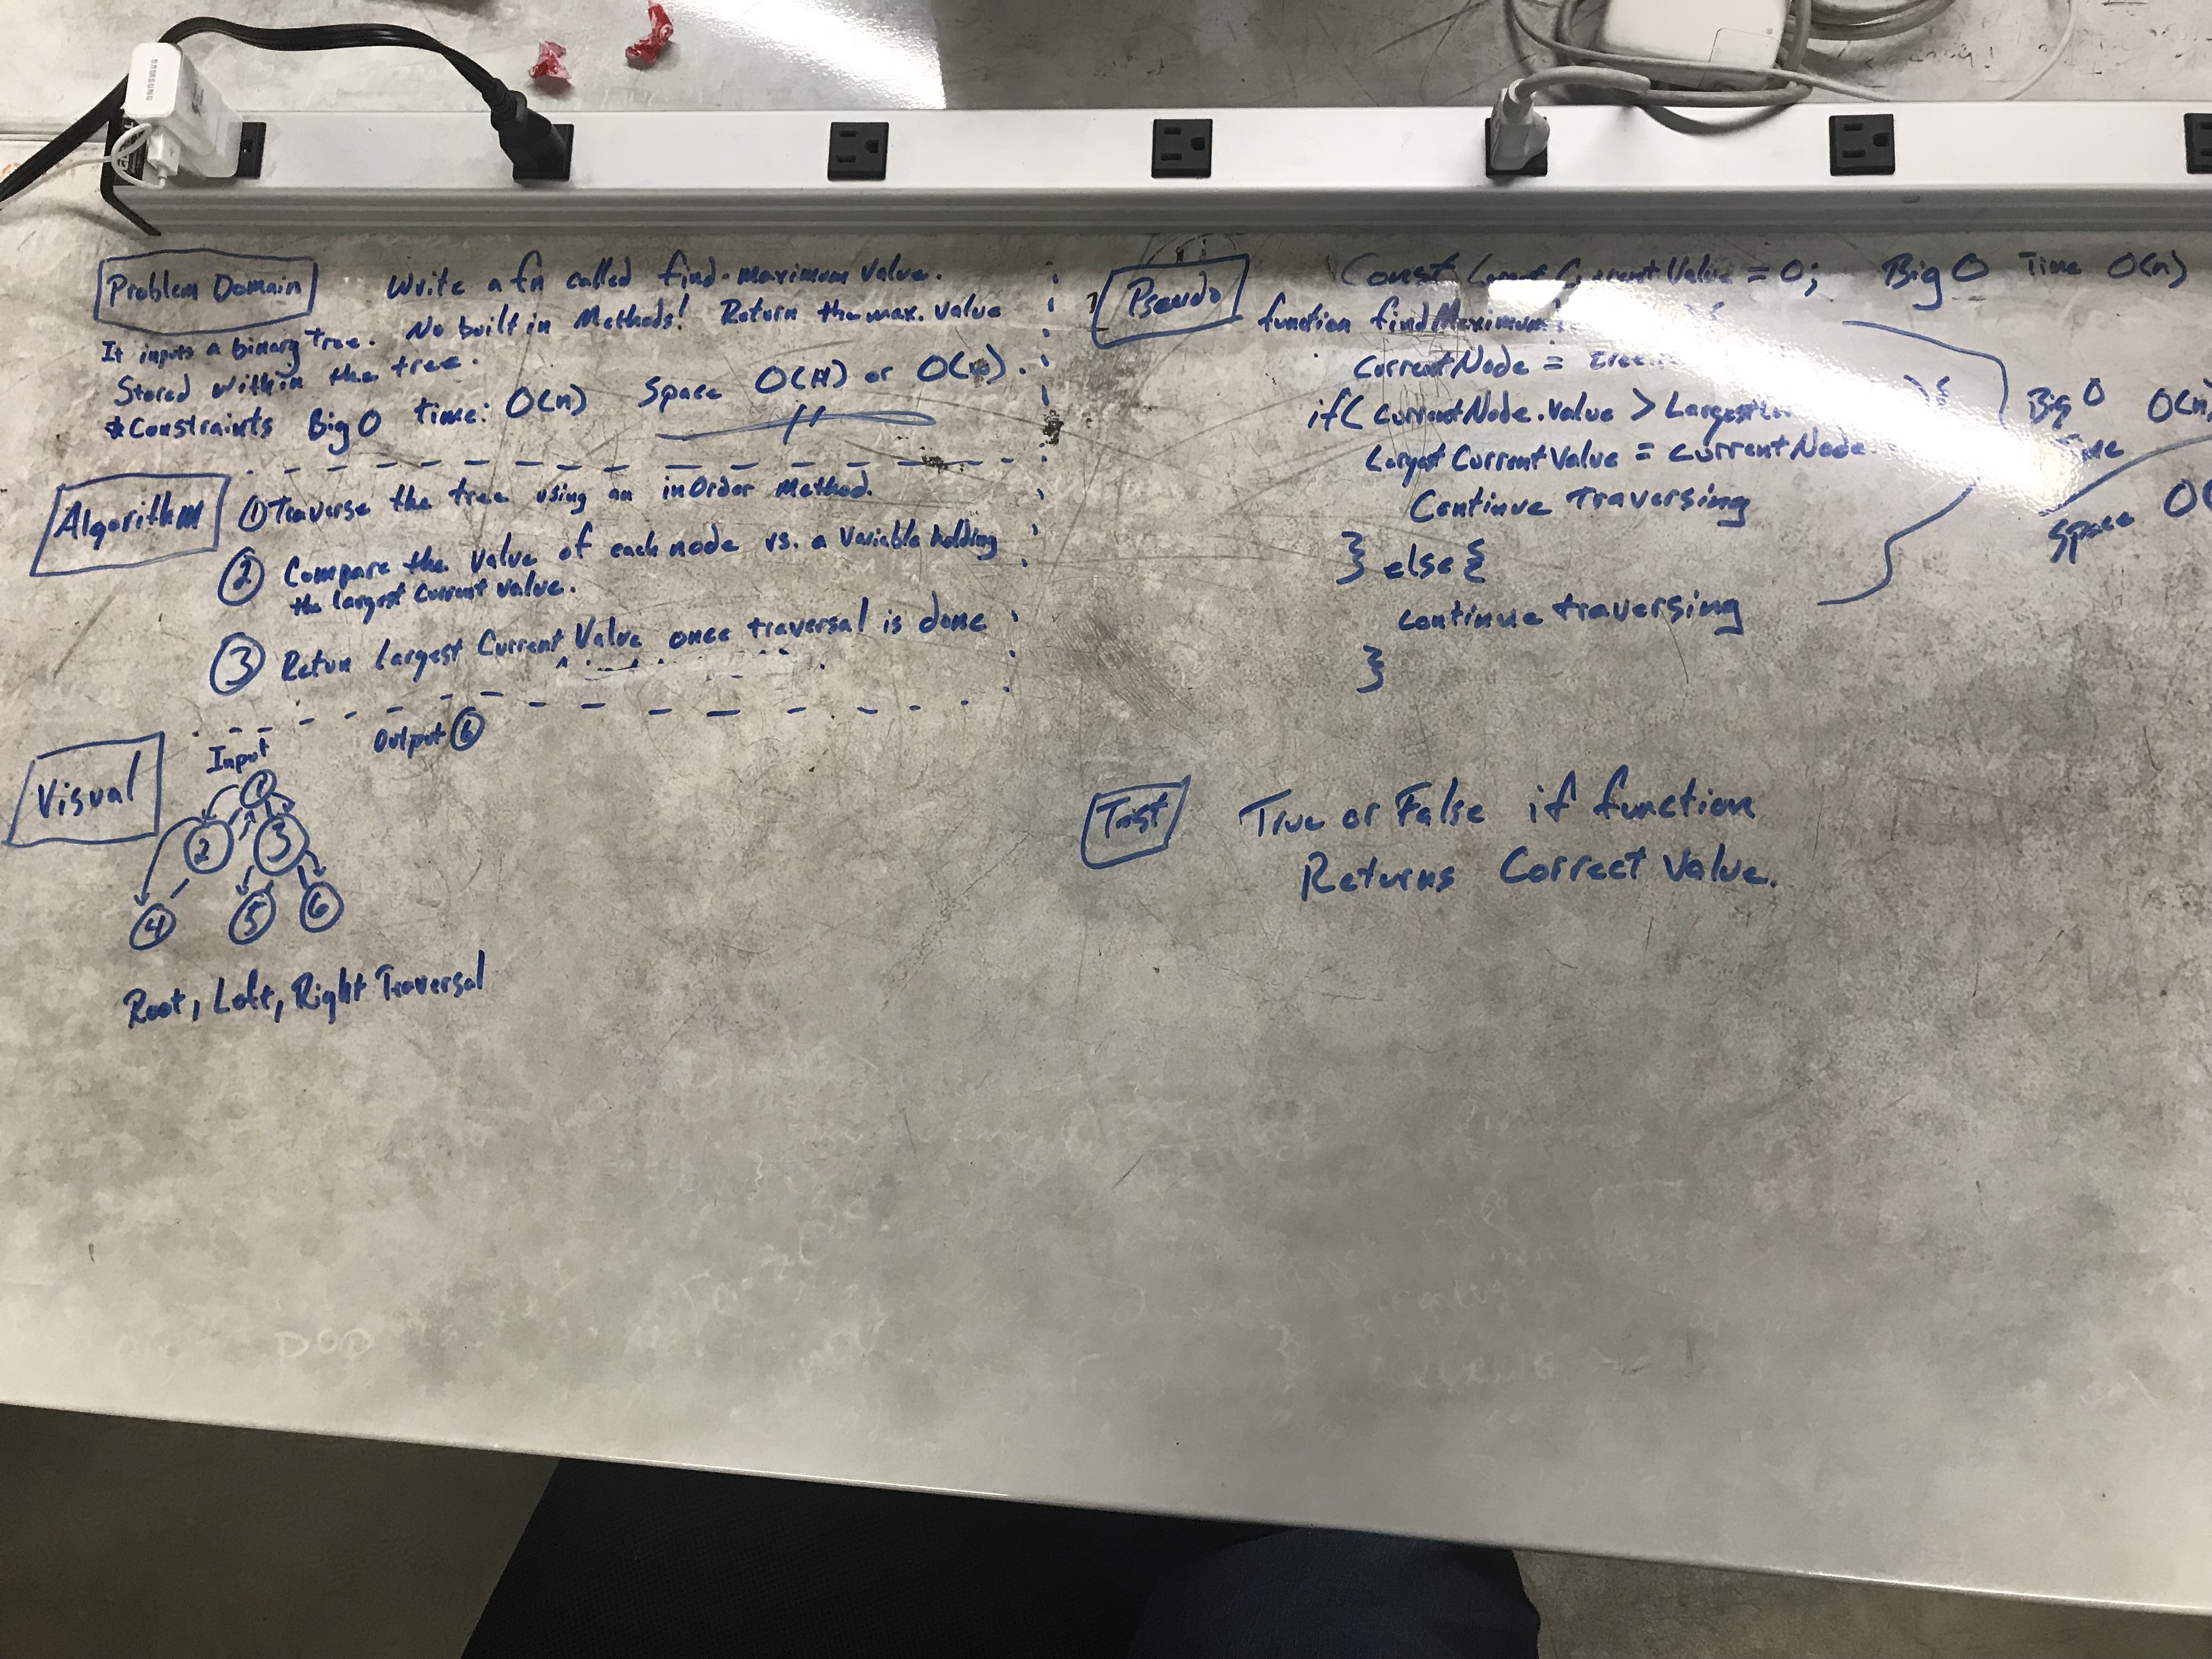 SAMSUNG
Problem Domain
Write a fn called find-maximum value.
It inputs a binary tree. No built in Methods! Return the max. value
Stored within the tree.
*Constraints Big O time: O(n) Space O(H) or O(w).
Algorithm
① Traverse the tree using an inOrder Method.
② Compare the value of each node vs. a variable holding
the largest current value.
③ Retun Largest Current Value once traversal is done
Visual
Input
Output ⑥
1
2 3
4 5 6
Root, Left, Right Traversal
Pseudo
Const Current Value = 0; Big O Time O(n)
function findMaximum
CurrentNode =
if( CurrentNode.value >
Largest Current Value = CurrentNode
Continue Traversing
} else {
continue traversing
}
Big O O(n)
Space O(
Test
True or False if function
Returns Correct Value.
POP